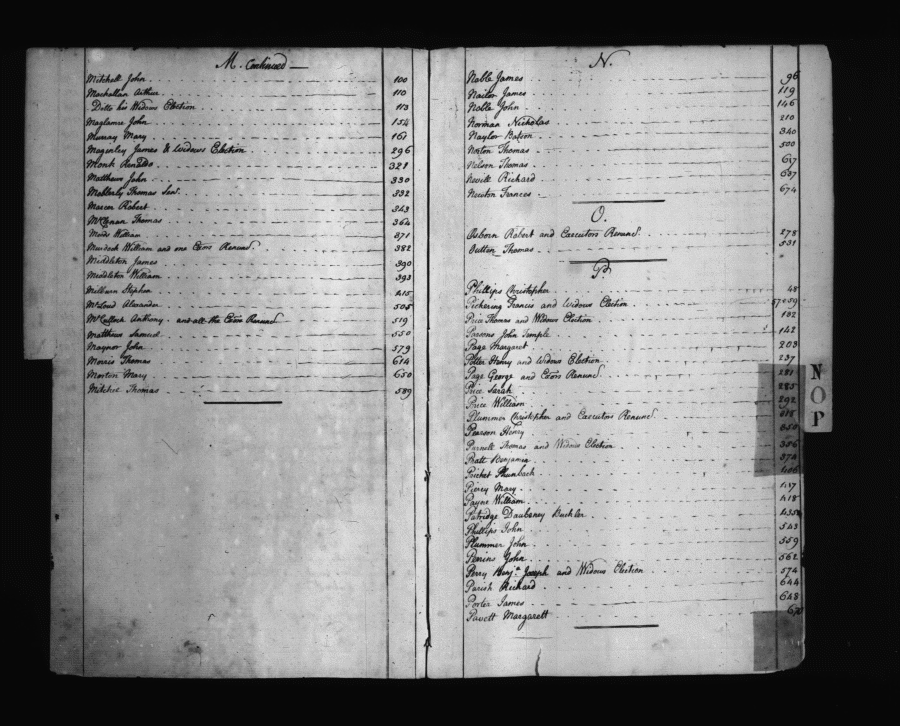 M. Continued
Mitchell John 100
Mackallan Arthur 110
Ditto his Widows Election 113
Maglamre John 154
Murray Mary 161
Magenley James & Widows Election 296
Monk 321
Matthews John 330
Mobberly Thomas Senr. 332
Mercer Robert 343
McClenan Thomas 364
Meads William 371
Murdock William and one Exors Renund. 382
Middleton James 390
Middleton William 393
Milburn Stephen 415
McLoud Alexander 505
McCullock Anthony and all the Exors Renund 519
Matthews Samuel 550
Maynor John 579
Morris Thomas 614
Morton Mary 650
Mitchee Thomas 589
N.
Noble James 96
Nailor James 119
Noble John 146
Norman Nicholas 210
Naylor Batson 340
Norton Thomas 500
Nelson Thomas 617
Nevitt Richard 637
Newton Frances 674
O.
Osborn Robert and Executors Renund. 278
Outton Thomas 531
P
Phillips Christopher 48
Pickering Francis and Widows Election 57+59
Price Thomas and Widows Election 132
Parsons John Temple 142
Page Margaret 203
Potter Henry and Widows Election 237
Page George and Exors Renund. 281
Price Sarah 285
Price William 292
Plummer Christopher and Executors Renuncd.
Pearson Henry 350
Parnell Thomas and Widows Election 356
Pratt Benjamin 374
Pricket 406
Pierry Mary 417
Payne William 418
Patridge Daubeney Buckler 435
Phillips John 543
Plummer John 559
Perrins John 562
Perry Benja. Joseph and Widows Election 574
Parish Richard 644
Porter James 648
Pavett Margarett 670
N
O
P